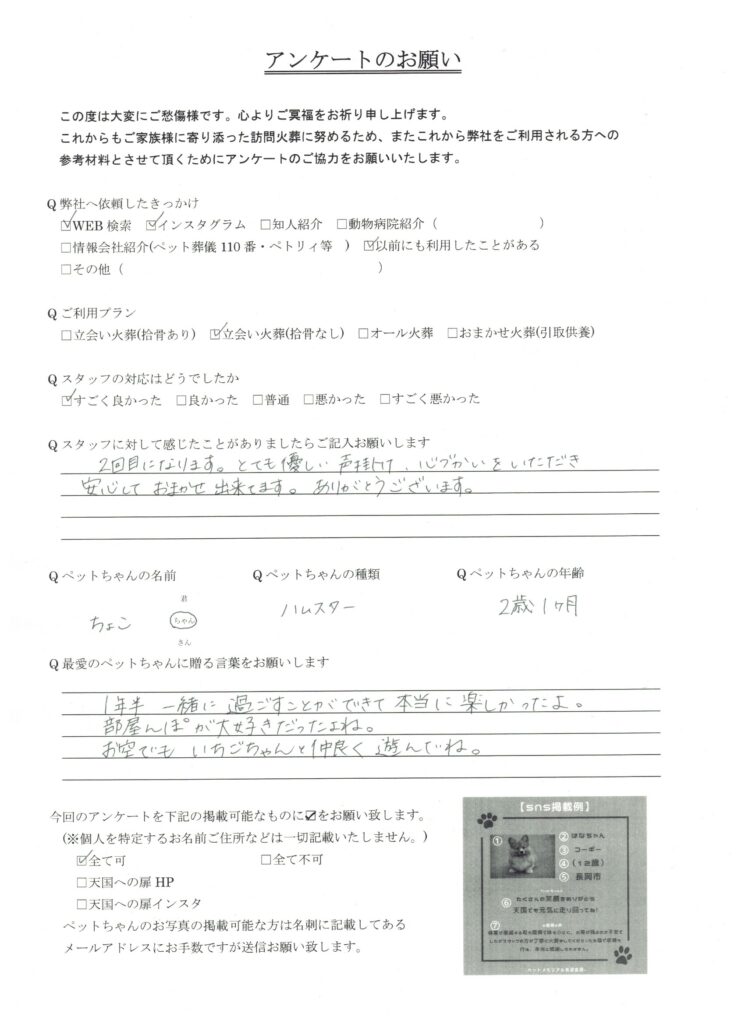 アンケートのお願い
この度は大変にご愁傷様です。心よりご冥福をお祈り申し上げます。
これからもご家族様に寄り添った訪問火葬に努めるため、またこれから弊社をご利用される方への
参考材料とさせて頂くためにアンケートのご協力をお願いいたします。
Q 弊社へ依頼したきっかけ
☑WEB 検索 ☑インスタグラム □知人紹介 □動物病院紹介（ ）
□情報会社紹介(ペット葬儀 110 番・ペトリィ等 ) ☑以前にも利用したことがある
□その他（ ）
Q ご利用プラン
□立会い火葬(拾骨あり) ☑立会い火葬(拾骨なし) □オール火葬 □おまかせ火葬(引取供養)
Q スタッフの対応はどうでしたか
☑すごく良かった □良かった □普通 □悪かった □すごく悪かった
Q スタッフに対して感じたことがありましたらご記入お願いします
2回目になります。とても優しい声掛け、心づかいをいただき
安心しておまかせ出来てます。ありがとうございます。
Q ペットちゃんの名前 Q ペットちゃんの種類 Q ペットちゃんの年齢
君
ちょこ ちゃん ハムスター 2歳1ヶ月
さん
Q 最愛のペットちゃんに贈る言葉をお願いします
1年半 一緒に過ごすことができて本当に楽しかったよ。
部屋んぽが大好きだったよね。
お空でもいちごちゃんと仲良く遊んでね。
今回のアンケートを下記の掲載可能なものに☑をお願い致します。
(※個人を特定するお名前ご住所などは一切記載いたしません。)
☑全て可 □全て不可
□天国への扉 HP
□天国への扉インスタ
ペットちゃんのお写真の掲載可能な方は名刺に記載してある
メールアドレスにお手数ですが送信お願い致します。
【sns掲載例】
① ② はなちゃん
③ コーギー
④ （12歳）
⑤ 長岡市
⑥ たくさんの笑顔をありがとう
天国でも元気に走り回ってね！
⑦